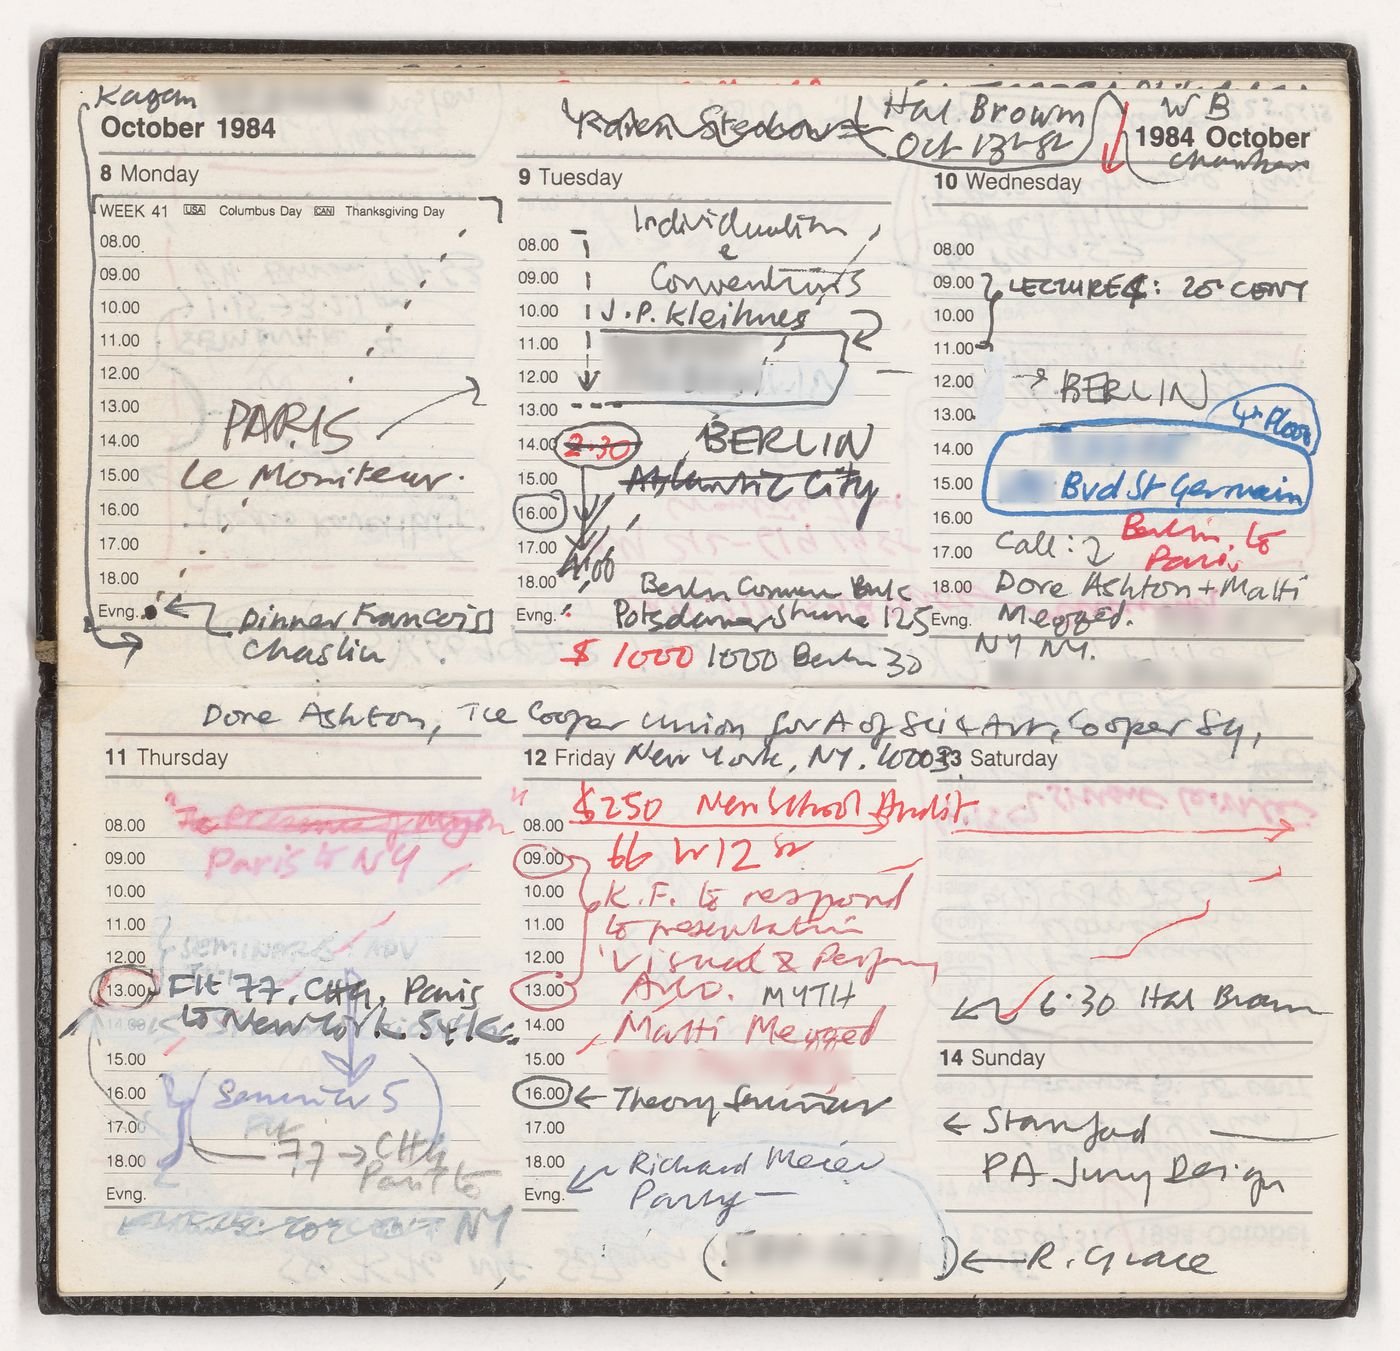 Kagan
October 1984
8 Monday
WEEK 41 USA Columbus Day CAN Thanksgiving Day
08.00
09.00
10.00
11.00
12.00
13.00
PARIS
14.00
Le Moniteur.
15.00
16.00
17.00
18.00
Evng.
Dinner Francois
Chaslin
Hal Brown
9 Tuesday
08.00
09.00
10.00
J.P. Kleihues
11.00
12.00
13.00
14.00 2.30 BERLIN
15.00 Atlantic City
16.00
17.00
4.00
18.00
Evng.
$ 1000 1000 Berlin 30
WB
1984 October
Chambers
10 Wednesday
08.00
09.00 LECTURE : 20 CENT
10.00
11.00
12.00 BERLIN
13.00 4th Floor
14.00
15.00 Bvd St Germain
16.00 Berlin to
17.00 Call: Paris
18.00 Dore Ashton + Matti
Evng. Megged.
NY NY.
Dore Ashton, The Cooper Union for A of Sci & Art, Cooper Sq,
11 Thursday
Paris to NY
08.00
09.00
10.00
11.00
SEMINARS
12.00
13.00 Flt 77. Paris
14.00 to New York.
15.00
16.00 Seminar 5
17.00
77
18.00 Paris to
Evng.
NY
12 Friday New York, NY. 10003
$250 New School Audit
08.00
66 W 12 St
09.00
10.00 K.F. to respond
11.00 to presentation
12.00 Visual & Perform
13.00 MYTH
14.00 Matti Megged
15.00
16.00 Theory Seminar
17.00
18.00 Richard Meier
Evng. Party
13 Saturday
6.30 Hal Brown
14 Sunday
Stanford
PA Jury Design
R. Grace